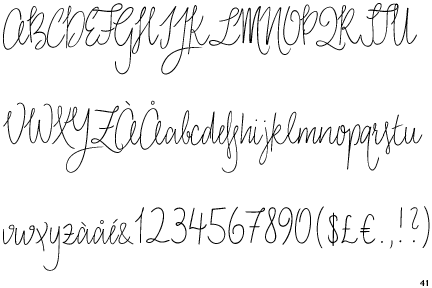 ABCDEFGHIJKLMNOPQRSTU
VWXYZÀÅabcdefghijklmnopqrstu
vwxyzàåé&1234567890($£€.,!?)
41